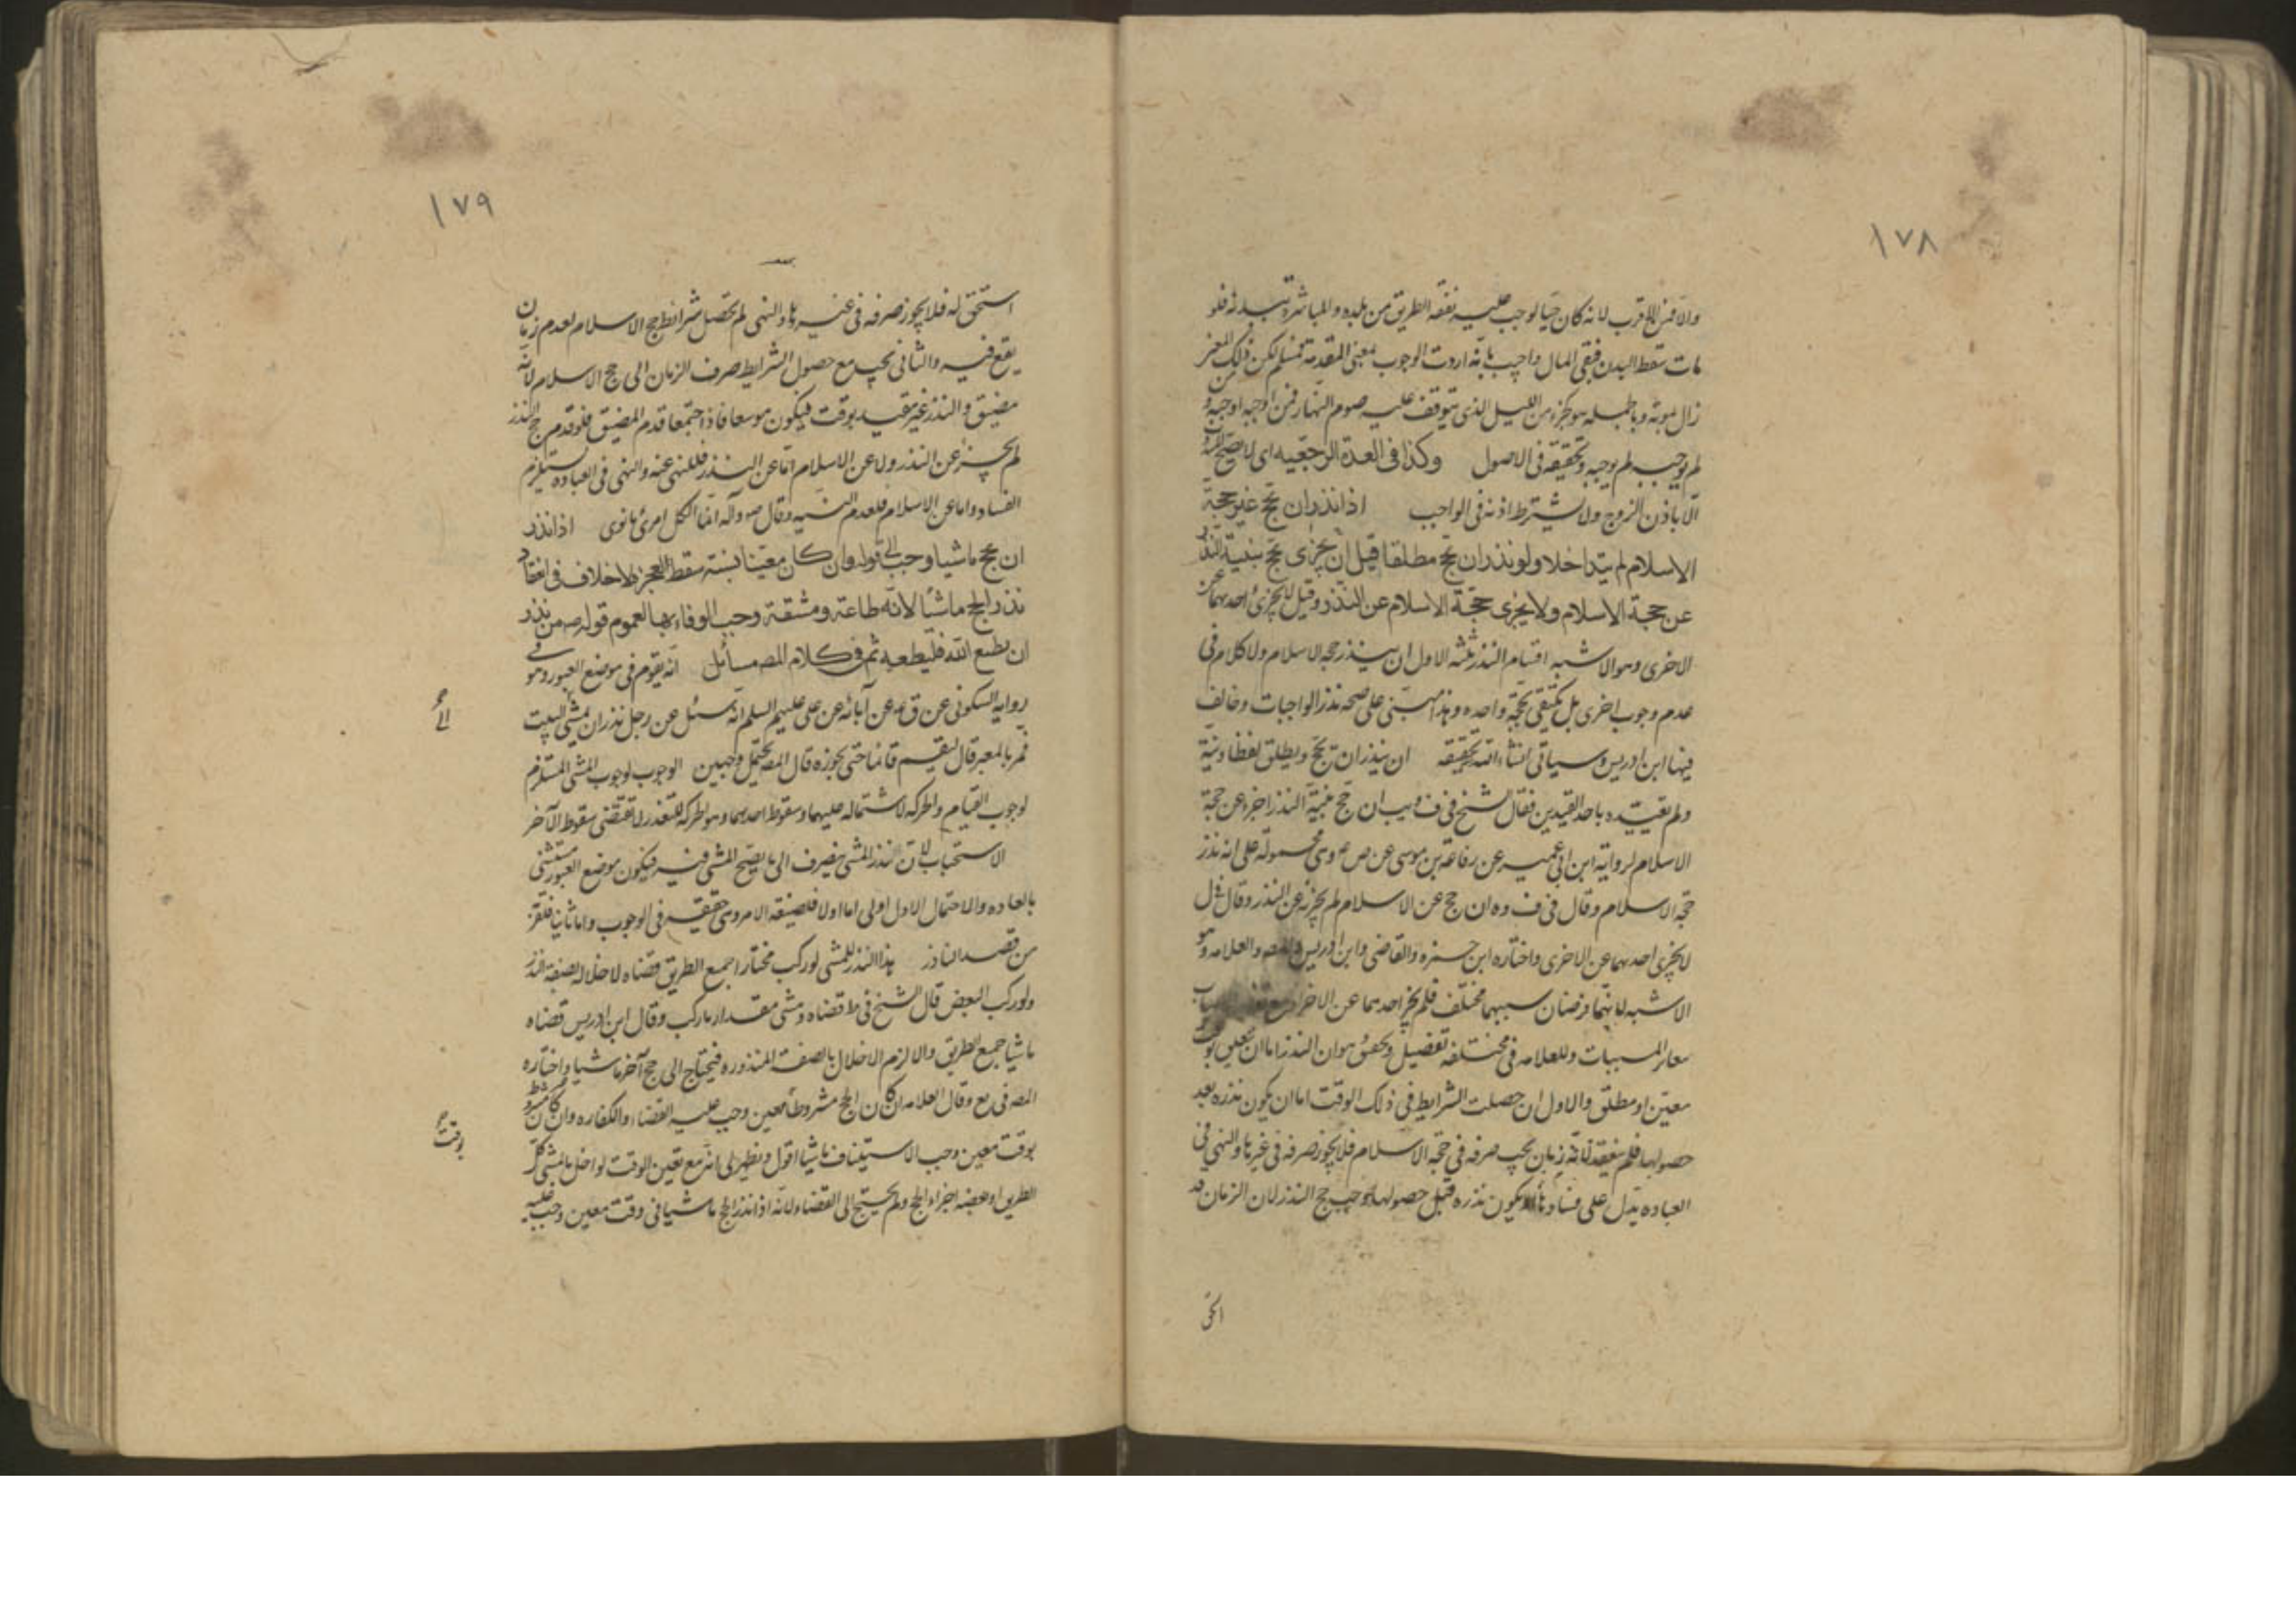 ١٧٨
والا فمن الاقرب لانه كان حيا لوجب عليه نفقه الطريق من بلده والمباشرة ببدنه فلو
مات سقط البدن فبقى المال واجيب بانه اردت الوجوب بمعنى المقدمة فمسلم لكن ذلك
زال بموته وبالجمله هو كجزء من الليل الذى يتوقف عليه صوم النهار فمن اوجبه اوجبه و
لم يوجبه لم يوجبه وتحقيقه فى الاصول وكذا فى العدة الرجعيه اى لا يصح
الا باذن الزوج ولا يشترط اذنه فى الواجب اذا نذر ان يحج غير حجة
الاسلام لم يتداخلا ولو نذر ان يحج مطلقا قيل ان يجزى يحج بنية النذر
عن حجة الاسلام ولا يجزى حجة الاسلام عن النذر وقيل لا يجزى احدهما عن
الاخرى وهو الاشبه اقسام النذر ثلثه الاول ان ينذر حجه الاسلام ولا كلام فى
عدم وجوب اخرى بل يكتفى بحجة واحده وهذا مبنى على صحه نذر الواجبات وخالف
فيها ابن ادريس وسياتى انشاء الله تحقيقه ان ينذر ان يحج ويطلق لفظا ونية
ولم تقييده باحد القيدين فقال الشيخ فى ف ويب ان حج بنية النذر اجزء عن حجة
الاسلام لرواية ابن ابى عمير عن رفاعة بن موسى عن ص ع وهى محمولة على انه نذر
حجه الاسلام وقال فى ف وه ان حج عن الاسلام لم يجزئه عن النذر وقال فى ل
لا يجزى احدهما عن الاخرى واختاره ابن حمزه والقاضى وابن ادريس والمصه والعلامه وهو
الاشبه لانهما فرضان سببهما مختلف فلم يجز احدهما عن الاخر
المسببات وللعلامه فى مختلفه تفصيل وتحقيق هو ان النذر اما ان تعلق بوقت
معين او مطلق والاول ان حصلت الشرايط فى ذلك الوقت اما ان يكون نذره بعد
حصولها فلم ينعقد لانه زمان يجب صرفه فى حجة الاسلام فلا يجوز صرفه فى غيرها والنهى فى
العباده يدل على فسادها او يكون نذره قبل حصولها يوجب حج النذر لان الزمان قد
١٧٩
استحق له فلا يجوز صرفه فى غيرها والنهى لم تحصل شرائط حج الاسلام لعدم زمان
يقع فيه والثانى يجب مع حصول الشرايط صرف الزمان الى حج الاسلام لانه
مضيق والنذر غير مقيد بوقت فيكون موسعا فاذا اجتمعا قدم المضيق فلو قدم حج النذر
لم يجز عن النذر ولا عن الاسلام اما عن النذر فللنهى عنه والنهى فى العباده يستلزم
الفساد واما عن الاسلام فلعدم النيه وقال ص وآله انما لكل امرئ ما نوى اذا نذر
ان يحج ماشيا وجب الى قوله وان كان معينا بسنة سقط للعجز لا خلاف فى انعقاد
نذر الحج ماشيا لانه طاعة ومشقة وجب الوفاء بها لعموم قوله ص من نذر
ان يطيع الله فليطعه ثم فى كلام المصه مسائل انه يقوم فى موضع العبور وهو فى
رواية السكونى عن ق عه عن آبائه عن على عليهم السلم انه سئل عن رجل نذر ان يمشى البيت
فمر بالمعبر قال ليقم قائما حتى يجوزه قال المصه يحتمل وجهين الوجوب لوجوب المشى المستلزم
لوجوب القيام والحركه لاشتماله عليهما وسقوط احدهما وهو الحركه للتعذر لا تقتضى سقوط الآخر
الاستحباب لان نذر المشى ينصرف الى ما يصح المشى فيه فيكون موضع العبور مستثنى
بالعاده والاحتمال الاول اولى اما اولا فلصيغه الامر وهى حقيقه فى الوجوب واما ثانيا
من قصد الناذر هذا النذر للمشى لو ركب مختارا جميع الطريق قضاه لاخلاله بصفة النذر
ولو ركب البعض قال الشيخ فى ط قضاه ومشى مقدار ما ركب وقال ابن ادريس قضاه
ماشيا جميع الطريق والا لزم الاخلال بالصفة المنذوره فيحتاج الى حج آخر ماشيا واختاره
المصه فى يع وقال العلامه ان كان الحج مشروطا معين وجب عليه القضاء والكفاره وان كان مشروط
بوقت معين وجب الاستيناف ماشيا اقول ويظهر لى انه مع تعين الوقت لو اخل بالمشى كل
الطريق او بعضه اجزاء الحج ولم يحتج الى القضاء لانه اذا نذر الحج ماشيا فى وقت معين وجب عليه
الى
بوقت